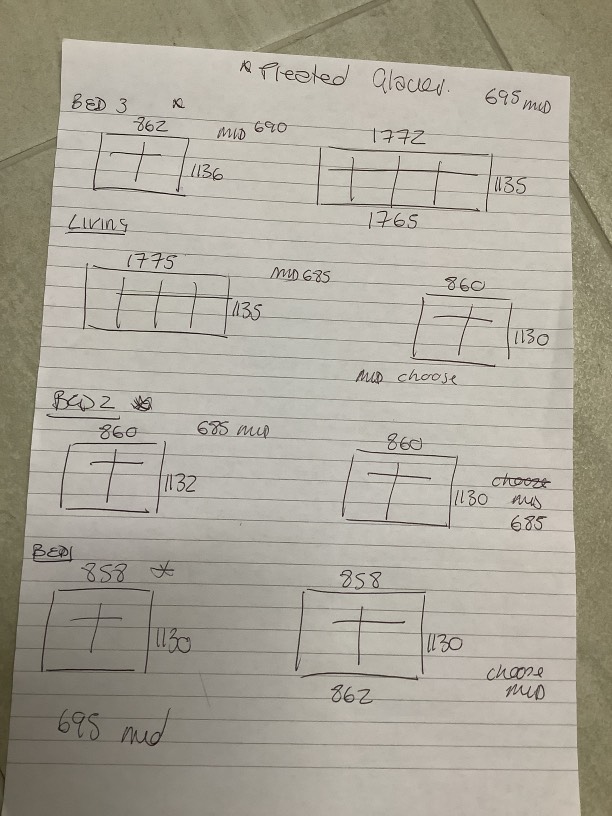 * Pleated Glacier. 695 mid
BED 3 *
862 MID 690 1772
1136 1135
1765
Living
1775 MID 685 860
1135 1130
MID choose
BED 2
860 685 mid 860
1132 1130 choose
MID
685
BED1
858 * 858
1130 1130
choose
MID
862
695 mid